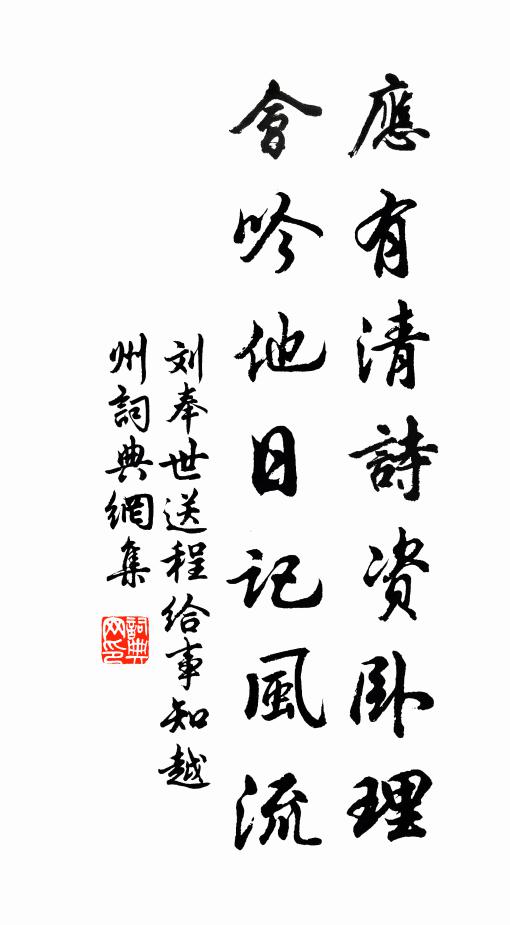 應有清詩資卧理
會吟他日記風流
刘奉世送程给事知越
州詞典網集
詞典
网印